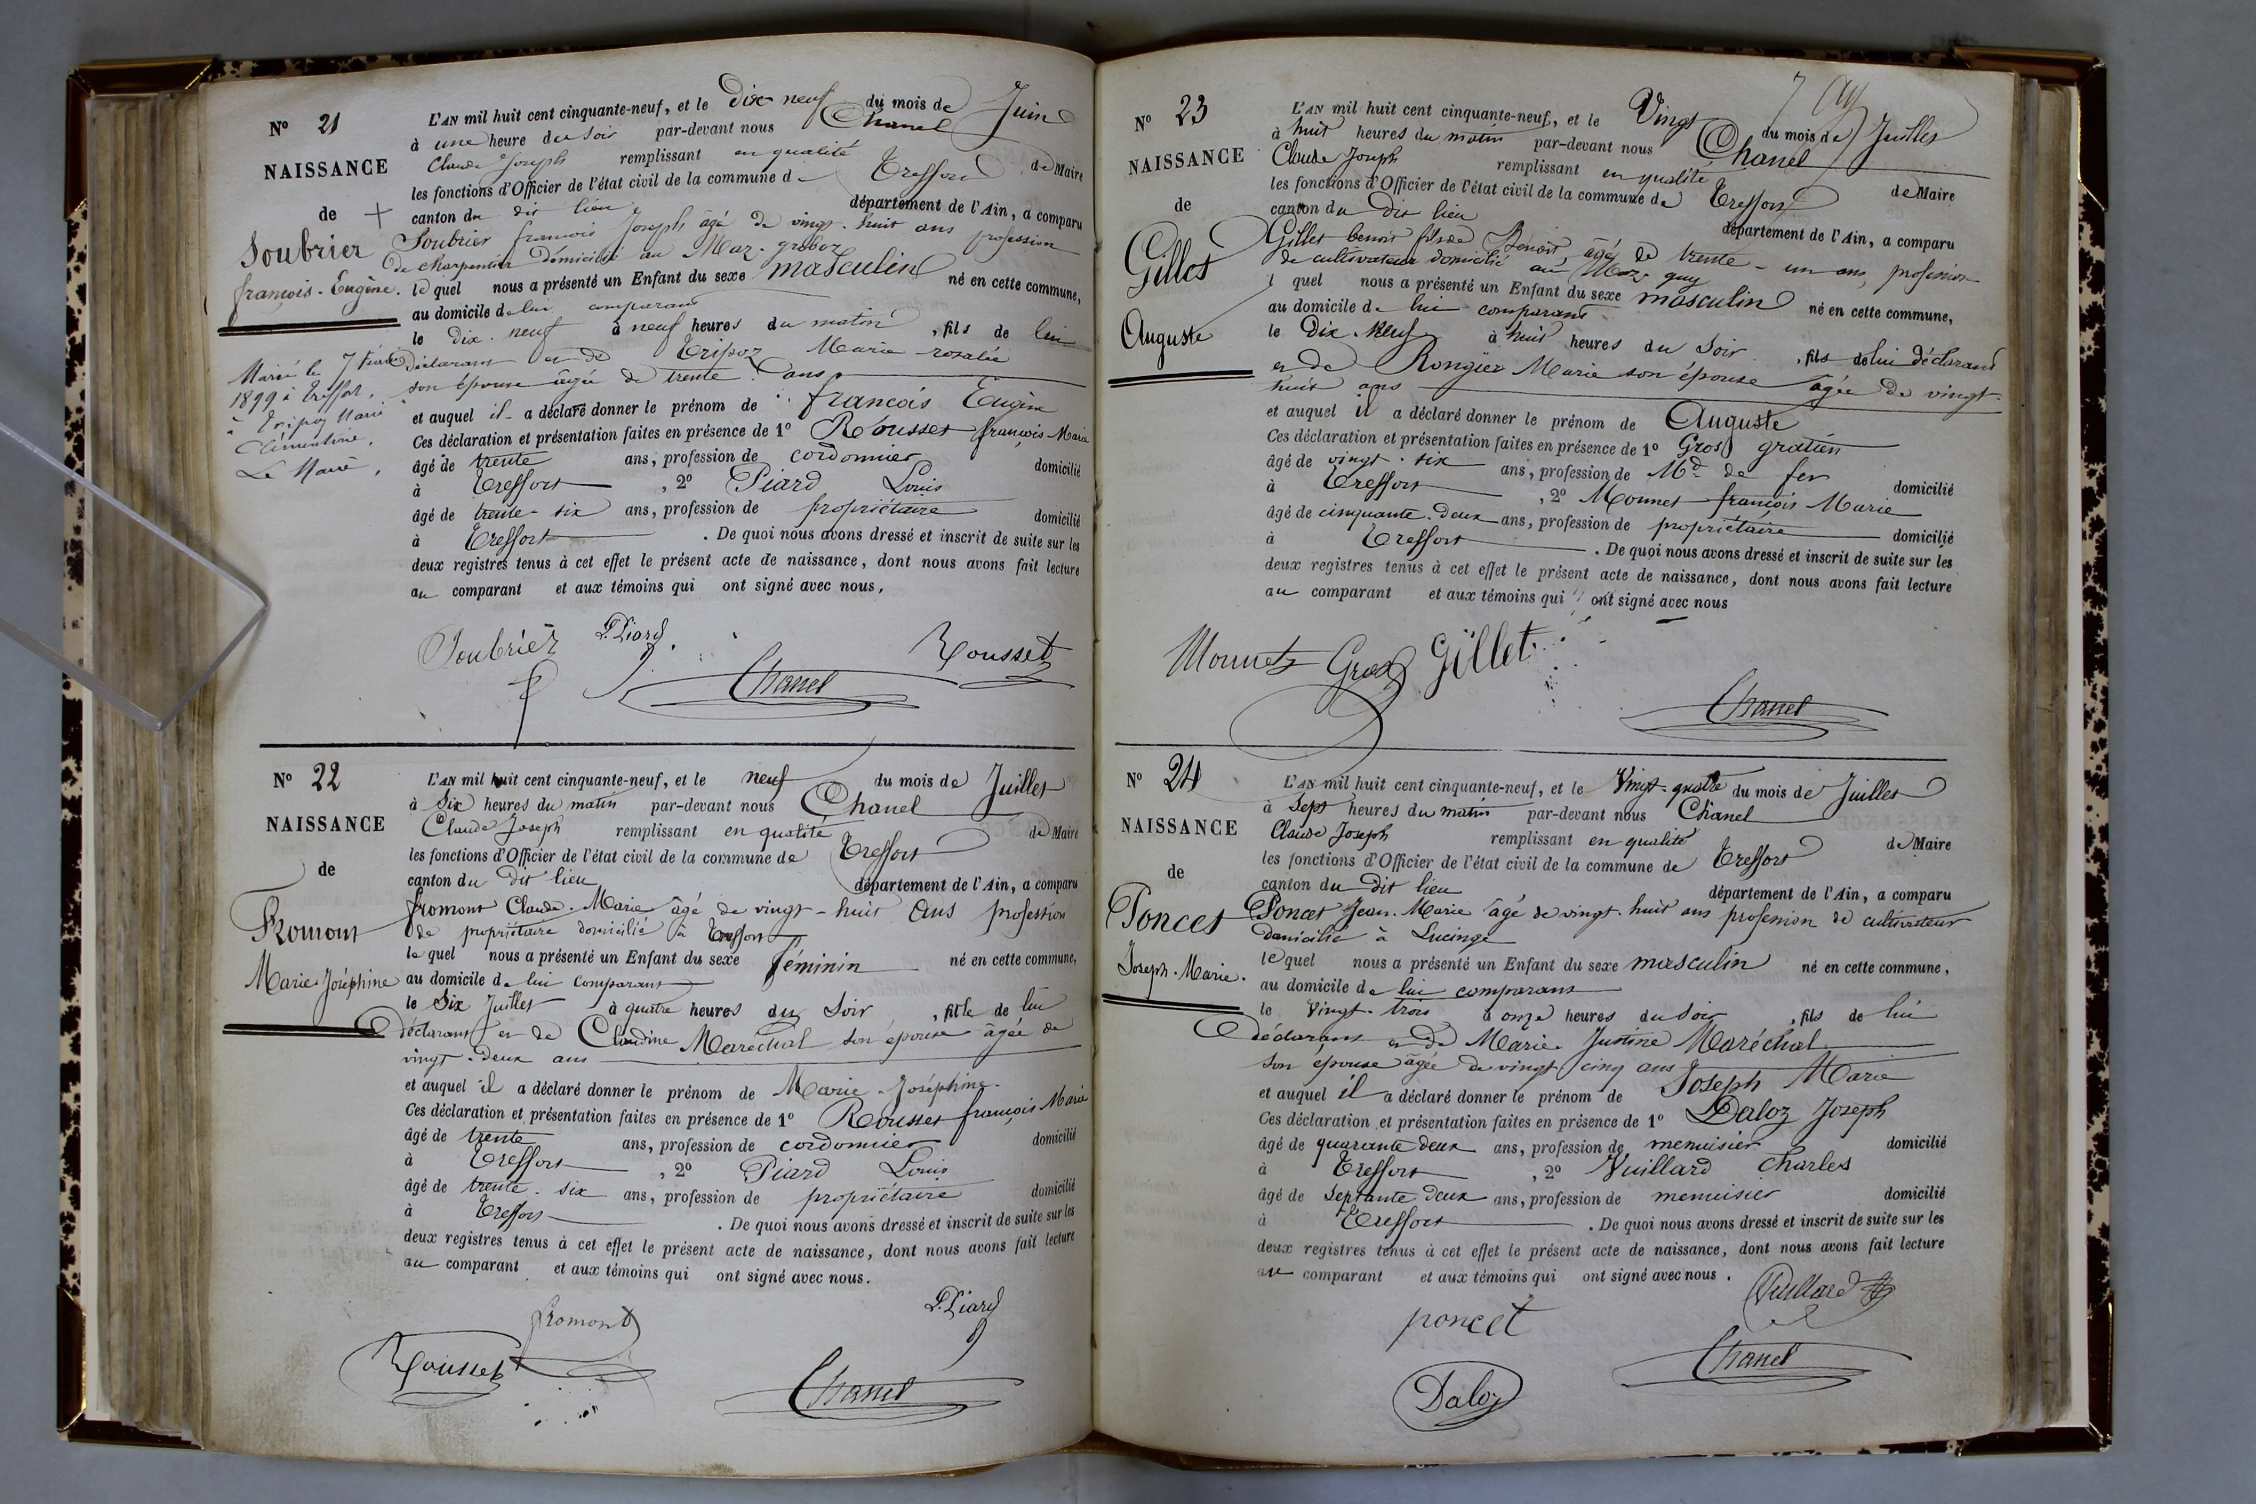 N° 21
NAISSANCE
de
Soubrier
françois-Eugène.
Marié le 7
1899 à Treffort,
à Tripoz Marie
Clémentine,
Le Maire,
L'AN mil huit cent cinquante-neuf, et le Dix neuf du mois de Juin
à une heure du soir par-devant nous Chanel
Claude Joseph remplissant en qualité de Maire
les fonctions d'Officier de l'état civil de la commune de Treffort
canton du dit lieu département de l'Ain, a comparu
Soubrier françois Joseph âgé de vingt-huit ans profession
de charpentier domicilié au Maz-groboz
lequel nous a présenté un Enfant du sexe masculin né en cette commune,
au domicile de lui comparant
le dix-neuf à neuf heures du matin, fils de lui
Déclarant et de Tripoz Marie rosalie
son épouse âgée de trente ans
et auquel il a déclaré donner le prénom de françois Eugène
Ces déclaration et présentation faites en présence de 1° Rousset françois Marie
âgé de trente ans, profession de cordonnier domicilié
à Treffort, 2° Piard Louis
âgé de trente-six ans, profession de propriétaire domicilié
à Treffort. De quoi nous avons dressé et inscrit de suite sur les
deux registres tenus à cet effet le présent acte de naissance, dont nous avons fait lecture
au comparant et aux témoins qui ont signé avec nous.
Soubrier L. Piard Rousset
Chanel
N° 22
NAISSANCE
de
Fromont
Marie-Joséphine
L'AN mil huit cent cinquante-neuf, et le neuf du mois de Juillet
à Six heures du matin par-devant nous Chanel
Claude Joseph remplissant en qualité de Maire
les fonctions d'Officier de l'état civil de la commune de Treffort
canton du Dit lieu département de l'Ain, a comparu
fromont Claude-Marie âgé de vingt-huit ans profession
de propriétaire domicilié à Treffort
lequel nous a présenté un Enfant du sexe féminin né en cette commune,
au domicile de lui Comparant
le Six Juillet à quatre heures du Soir, fille de lui
déclarant et de Claudine Maréchal son épouse âgée de
vingt-deux ans
et auquel il a déclaré donner le prénom de Marie-Joséphine
Ces déclaration et présentation faites en présence de 1° Rousset françois Marie
âgé de trente ans, profession de cordonnier domicilié
à Treffort, 2° Piard Louis
âgé de trente-six ans, profession de propriétaire domicilié
à Treffort. De quoi nous avons dressé et inscrit de suite sur les
deux registres tenus à cet effet le présent acte de naissance, dont nous avons fait lecture
au comparant et aux témoins qui ont signé avec nous.
fromont L. Piard
Rousset Chanel
N° 23
NAISSANCE
de
Gillet
Auguste
L'AN mil huit cent cinquante-neuf, et le Vingt du mois de Juillet
à huit heures du matin par-devant nous Chanel
Claude Joseph remplissant en qualité de Maire
les fonctions d'Officier de l'état civil de la commune de Treffort
canton du Dit lieu département de l'Ain, a comparu
Gillet benoit fils de Benoit, âgé de trente-un ans, profession
de cultivateur domicilié au Maz-guy
lequel nous a présenté un Enfant du sexe masculin né en cette commune,
au domicile de lui comparant
le Dix-Neuf à huit heures du Soir, fils de lui déclarant
et de Rongier Marie son épouse âgée de vingt-
huit ans
et auquel il a déclaré donner le prénom de Auguste
Ces déclaration et présentation faites en présence de 1° Gros gratien
âgé de vingt-six ans, profession de Md de fer domicilié
à Treffort, 2° Monnet françois Marie
âgé de cinquante-deux ans, profession de propriétaire domicilié
à Treffort. De quoi nous avons dressé et inscrit de suite sur les
deux registres tenus à cet effet le présent acte de naissance, dont nous avons fait lecture
au comparant et aux témoins qui ont signé avec nous
Monnet Gros Gillet
Chanel
N° 24
NAISSANCE
de
Poncet
Joseph-Marie.
L'AN mil huit cent cinquante-neuf, et le Vingt-quatre du mois de Juillet
à Sept heures du matin par-devant nous Chanel
Claude Joseph remplissant en qualité de Maire
les fonctions d'Officier de l'état civil de la commune de Treffort
canton du Dit lieu département de l'Ain, a comparu
Poncet Jean-Marie âgé de vingt-huit ans profession de cultivateur
domicilié à Lucinge
lequel nous a présenté un Enfant du sexe masculin né en cette commune,
au domicile de lui comparant
le Vingt-trois à onze heures du soir, fils de lui
déclarant et de Marie Justine Maréchal
son épouse âgée de vingt-cinq ans
et auquel il a déclaré donner le prénom de Joseph Marie
Ces déclaration et présentation faites en présence de 1° Daloz Joseph
âgé de quarante deux ans, profession de menuisier domicilié
à Treffort, 2° Vuillard Charles
âgé de Septante deux ans, profession de menuisier domicilié
à Treffort. De quoi nous avons dressé et inscrit de suite sur les
deux registres tenus à cet effet le présent acte de naissance, dont nous avons fait lecture
au comparant et aux témoins qui ont signé avec nous.
Vuillard
poncet
Chanel
Daloz